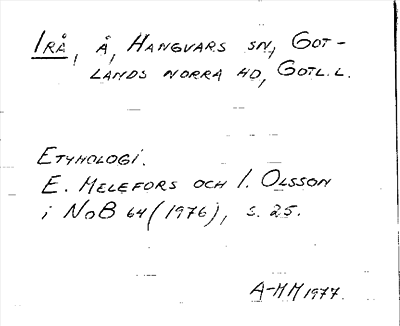 IRÅ, Å, HANGVARS SN, GOT-
LANDS NORRA HD, GOTL. L.
ETYMOLOGI.
E. MELEFORS OCH I. OLSSON
i NoB 64 (1976), S. 25.
A-MM 1977.